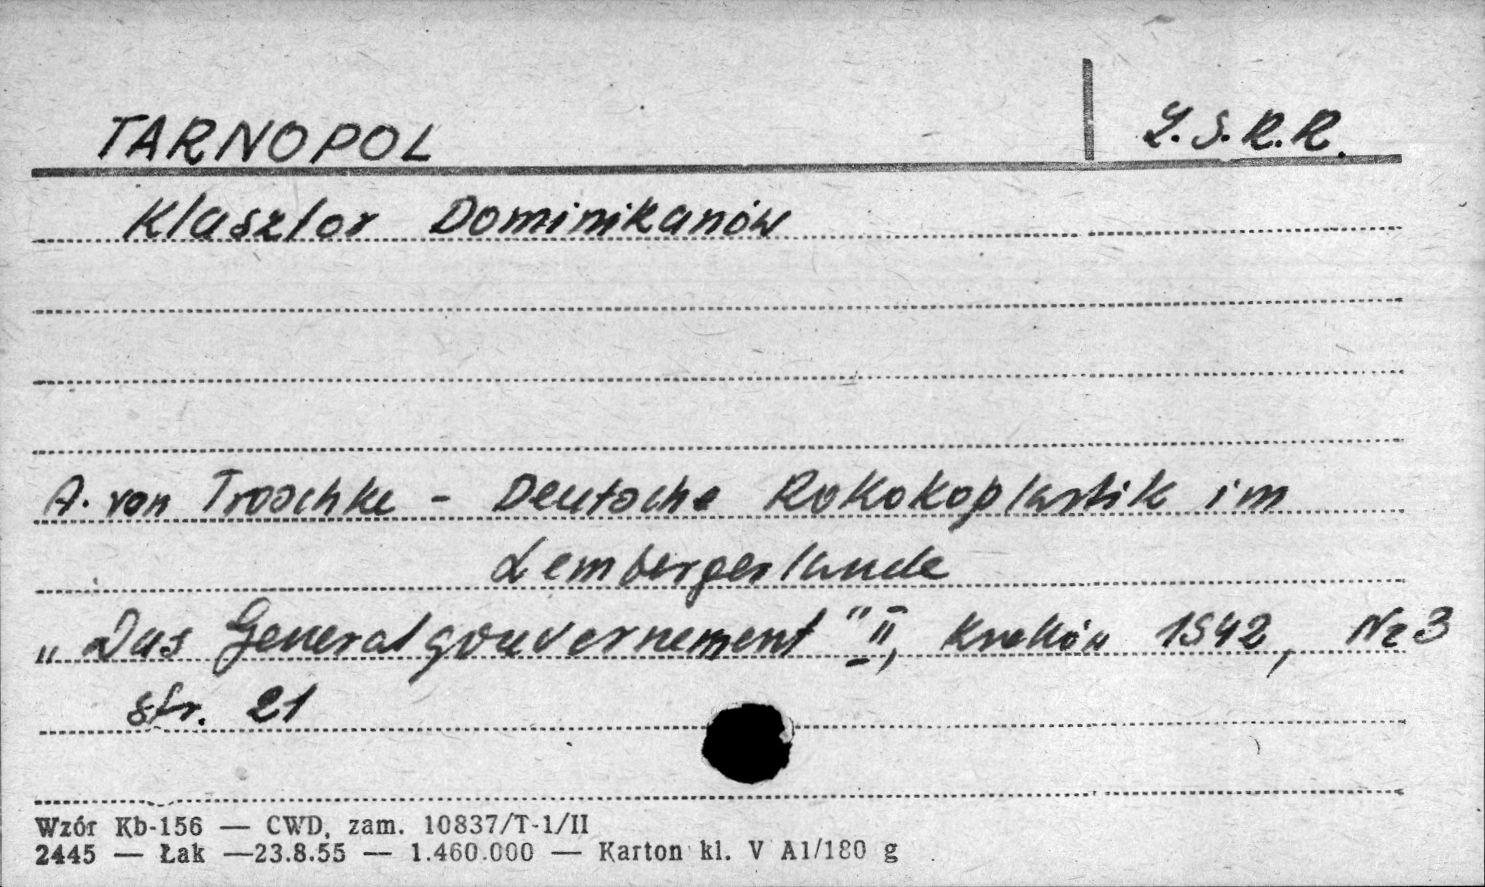 TARNOPOL
Z.S.R.R.
Klasztor Dominikanów
A. von Troschke - Deutsche Rokokoplastik im
Lembergerlande
„Das Generalgouvernement" II, Kraków 1942, Nr 3
str. 21
Wzór Kb-156 — CWD, zam. 10837/T-1/II
2445 — Łak —23.8.55 — 1.460.000 — Karton kl. V A1/180 g